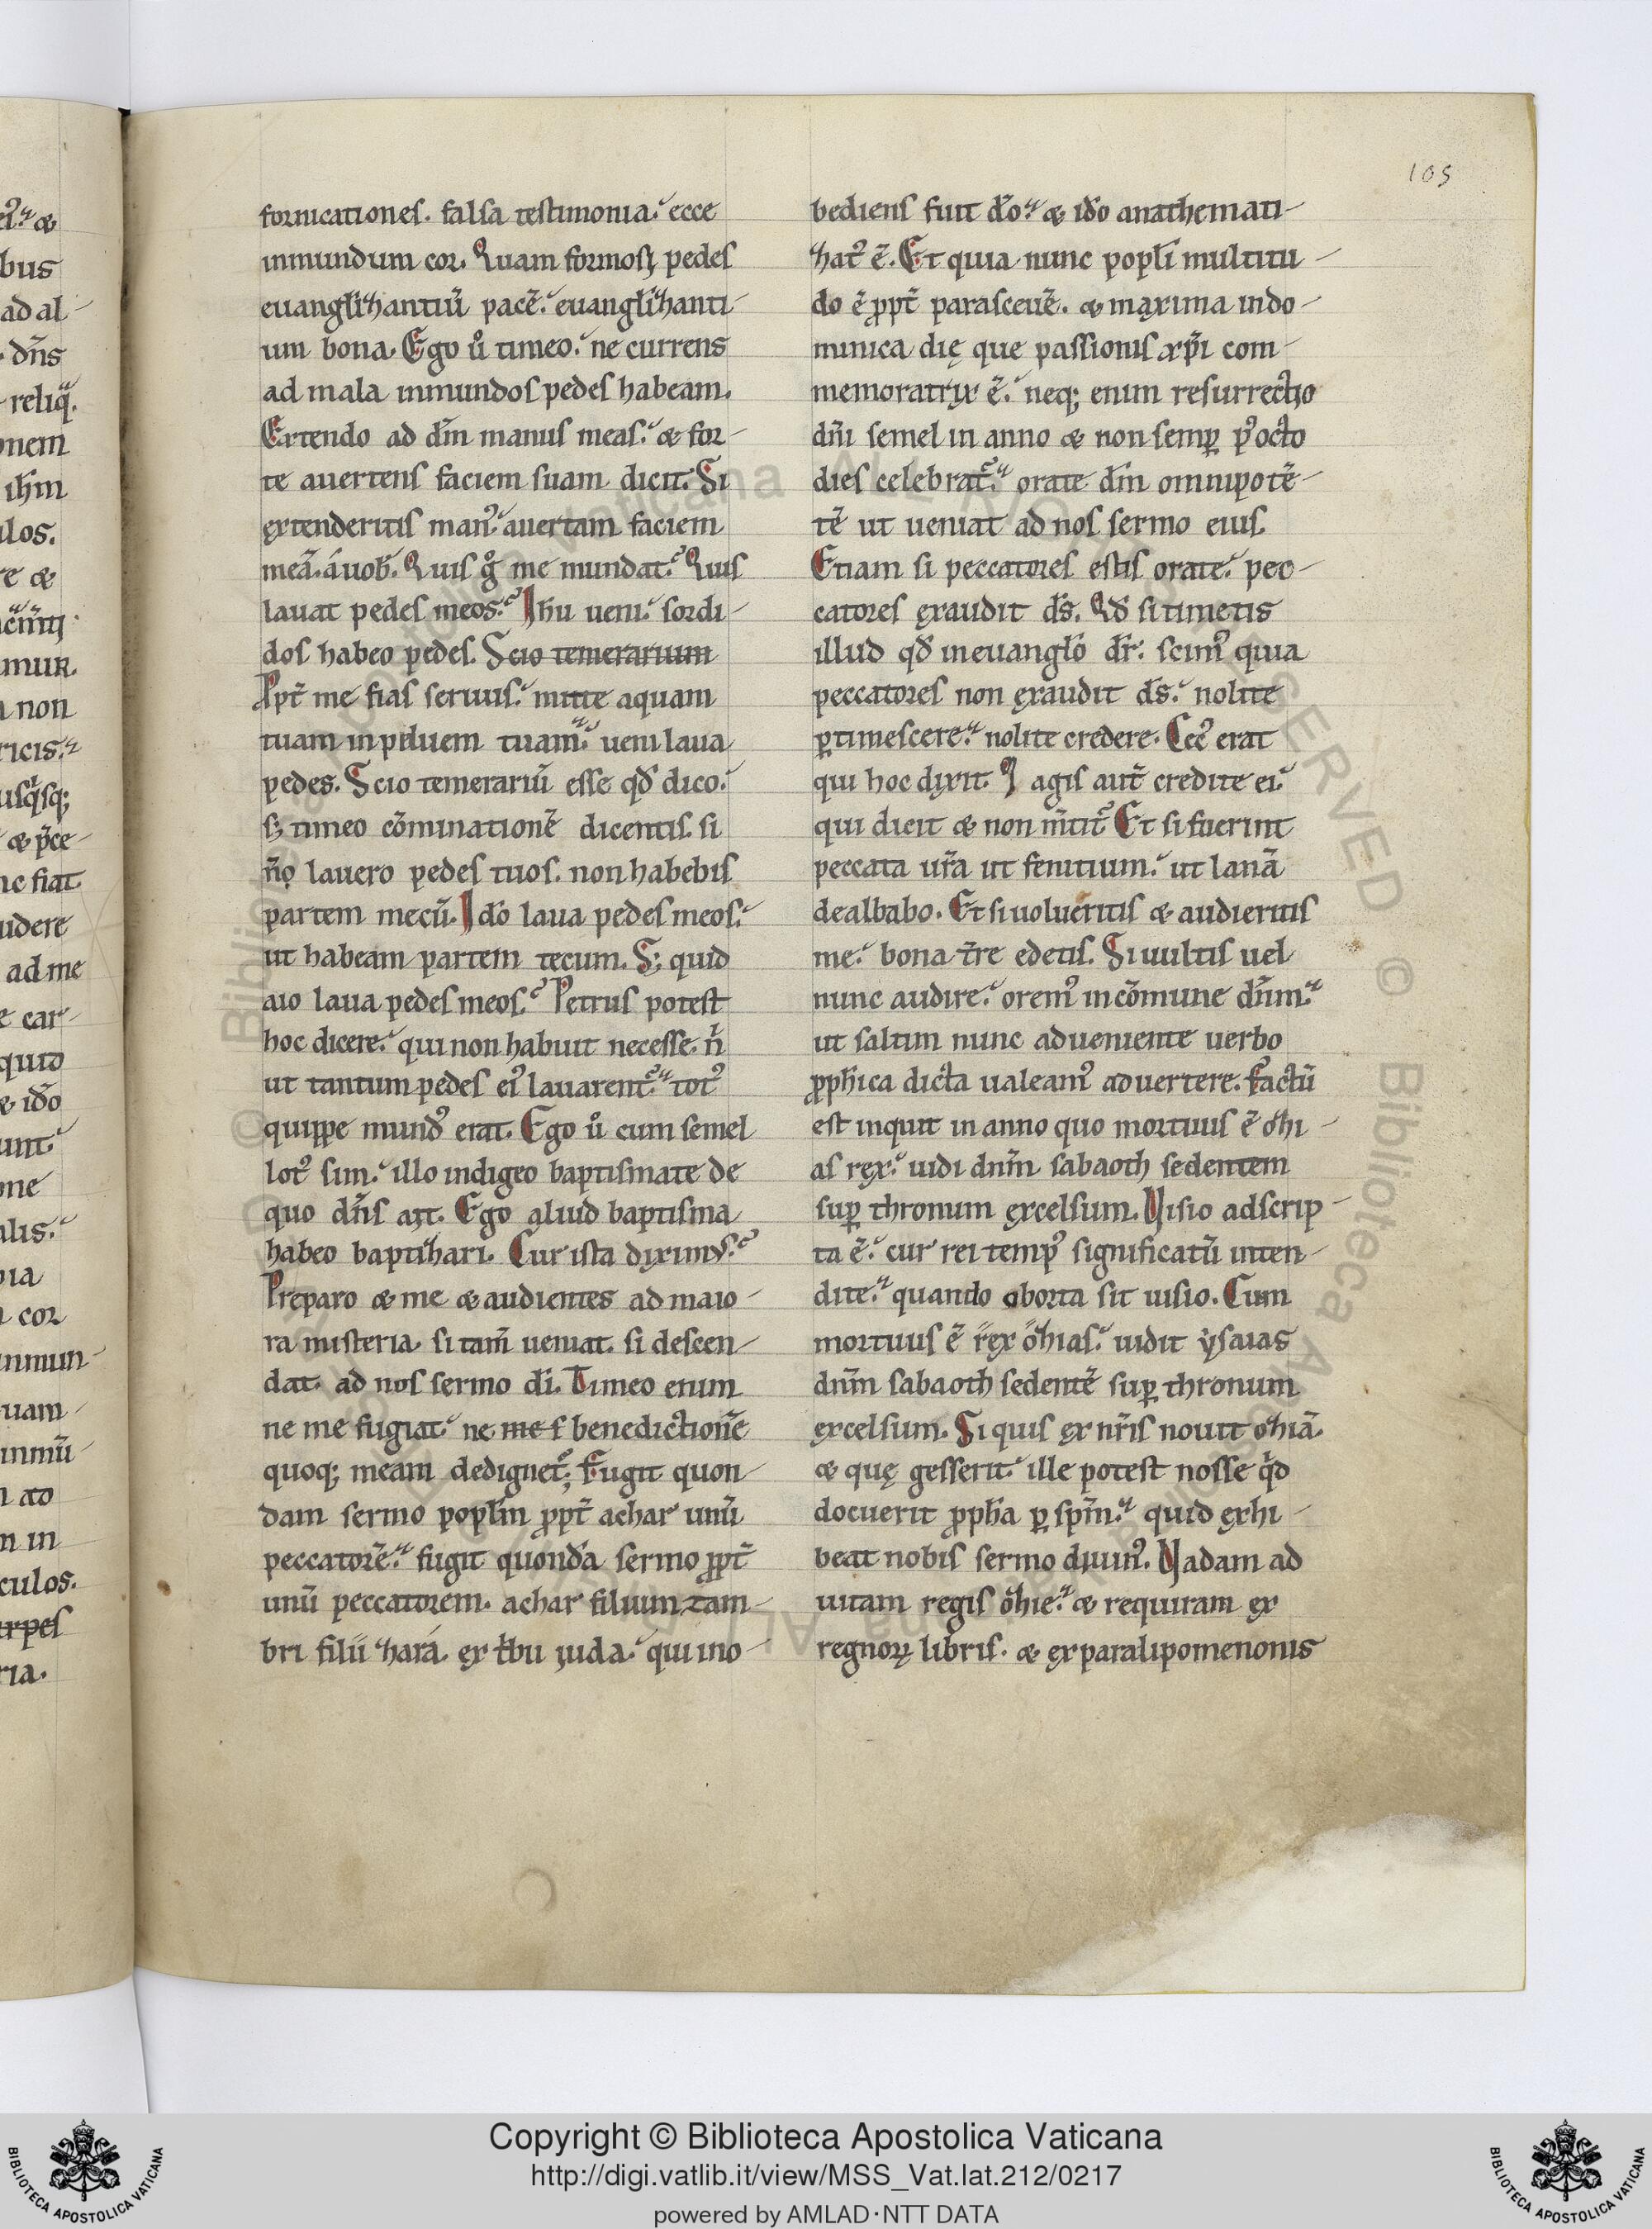 105
fornicationes. falsa testimonia. ecce
inmundum cor. Quam formosę pedes
euangliʒantiũ pacẽ. euangliʒanti-
um bona. Ego ů timeo. ne currens
ad mala inmundos pedes habeam.
Extendo ad dm̃ manus meas. & for-
te auertens faciem suam dicit. Si
extenderitis man᾽. auertam faciem
meã. á uob̃. Quis g̊ me mundat. Quis
lauat pedes meos. Ihũ ueni. sordi-
dos habeo pedes. Scio temerarium
Ppt̃ me fias seruus. mitte aquam
tuam in peluem tuam. ueni laua
pedes. Scio temerariũ esse qđ dico.
sꝫ timeo cõminationẽ dicentis. si
ño lauero pedes tuos. non habebis
partem mecũ. Ido laua pedes meos.
ut habeam partem tecum. Sꝫ quid
aio laua pedes meos. Petrus potest
hoc dicere. qui non habuit necesse. ñ
ut tantum pedes ei᾽ lauarent᾽. tot᾽
quippe mund᾽ erat. Ego ů cum semel
lot᾽ sim. illo indigeo baptismate de
quo dñs ait. Ego aliud baptisma
habeo baptiʒari. Cur ista diximus.
Preparo & me & audientes ad maio-
ra misteria. si tam̃ ueniat. si descen-
dat. ad nos sermo di. Timeo enim
ne me fugiat. ne me f benedictionẽ
quoq; meam dedignet᾽; Fugit quon-
dam sermo poplm̃ ꝓpt̃ achar unũ
peccatorẽ. fugit quondã sermo ꝓpt̃
unũ peccatorem. achar filium zam-
bri filii ʒará. ex tbu iuda. qui ino-
bediens fuit do. & ido anathemati-
ʒat᾽ ẽ. Et quia nunc popli multitu-
do ẽ ꝓpt̃ parasceuẽ. & maxima in do-
minica dię que passionis xp̃i com-
memoratrix ẽ. neq; enim resurrectio
dñi semel in anno & non semꝑ p᾽ octo
dies celebrat᾽. orate dm̃ omnipotẽ-
tẽ ut ueniat ad nos sermo eius.
Etiam si peccatores estis orate. pec-
catores exaudit d̃s. Qđ si timetis
illud qđ in euanglo dr̃. scim᾽ quia
peccatores non exaudit d̃s. nolite
ꝑtimescere. nolite credere. Cec᾽ erat
qui hoc dixit. M agis aut̃ credite ei.
qui dicit & non m̃tit᾽. Et si fuerint
peccata ur̃a ut fenitium. ut lanã
dealbabo. Et si uolueritis & audieritis
me. bona tr̃re edetis. Si uultis uel
nunc audire. orem᾽ in cõmune dñm.
ut saltim nunc adueniente uerbo
ꝓphica dicta ualeam᾽ aduertere. factũ
est inquit in anno quo mortuus ẽ oʒi-
as rex. uidi dnm̃ sabaoth sedentem
suꝑ thronum excelsum. Visio adscrip-
ta ẽ. cur rei temp᾽ significatũ inten-
dite. quando oborta sit uisio. Cum
mortuus ẽ rex oʒias. uidit ysaias
dnm̃ sabaoth sedentẽ suꝑ thronum
excelsum. Si quis ex nr̃is nouit oʒiã.
& quę gesserit. ille potest nosse qd
docuerit ꝓpha ꝑ spm̃. quid exhi-
beat nobis sermo diuin᾽. Vadam ad
uitam regis oʒie. & requiram ex
regnoꝝ libris. & ex paralipomenonis
Copyright © Biblioteca Apostolica Vaticana
http://digi.vatlib.it/view/MSS_Vat.lat.212/0217
powered by AMLAD·NTT DATA